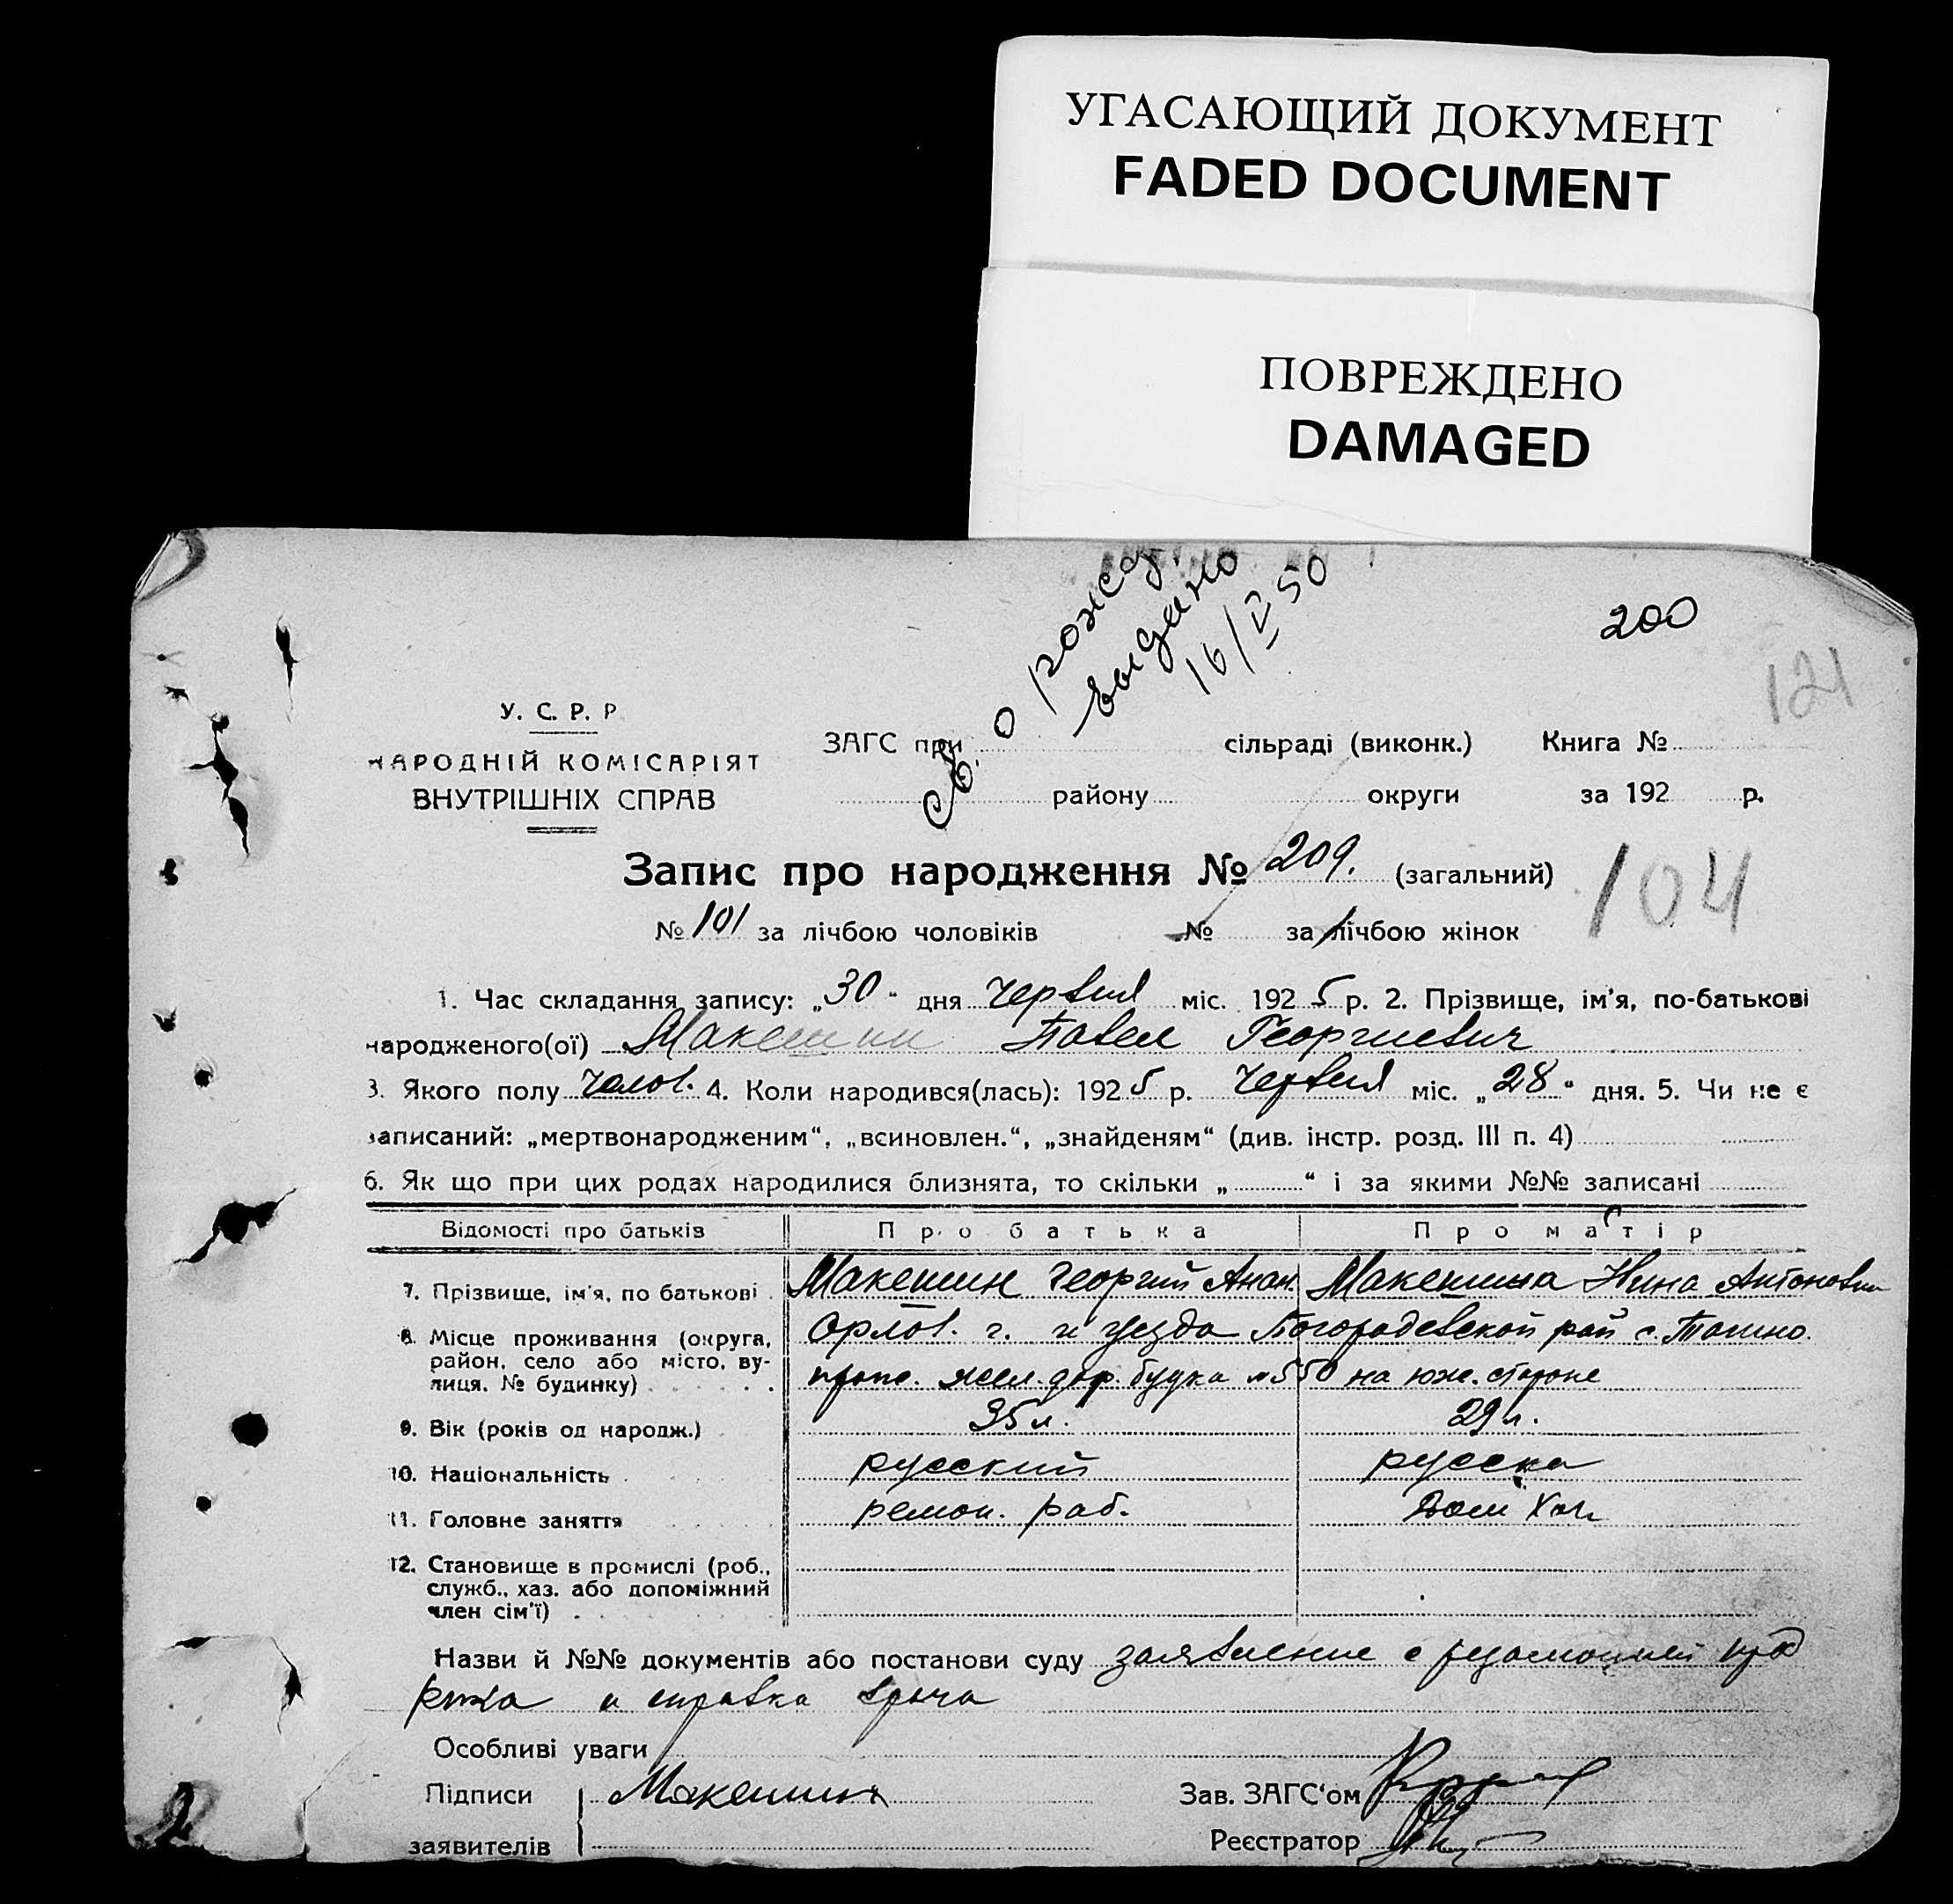 УГАСАЮЩИЙ ДОКУМЕНТ
FADED DOCUMENT
ПОВРЕЖДЕНО
DAMAGED
св. о рожд.
выдано
16/V 50
200
121
У. С. Р. Р
НАРОДНІЙ КОМІСАРІЯТ
ВНУТРІШНІХ СПРАВ
ЗАГС при сільраді (виконк.) Книга №
району округи за 192 р.
Запис про народження № 209. (загальний)
104
№ 101 за лічбою чоловіків № за лічбою жінок
1. Час складання запису: „30" дня червня міс. 1925 р. 2. Прізвище, ім'я, по-батькові
народженого(ої) Макешин Павел Георгиевич
3. Якого полу чолов. 4. Коли народився(лась): 1925 р. червня міс. „28" дня. 5. Чи не є
записаний: „мертвонародженим", „всиновлен.", „знайденям" (див. інстр. розд. III п. 4)
6. Як що при цих родах народилися близнята, то скільки „ " і за якими №№ записані
Відомості про батьків Про батька Про матір
7. Прізвище, ім'я, по батькові Макешин Георгий Анан. Макешина Нина Антоновн
8. Місце проживання (округа, район, село або місто, вулиця. № будинку) Орлов. г. и уезда рай с.
жел. дор. будка №550 на юж. стороне
9. Вік (років од народж.) 35 л. 29 л.
10. Національність русский русска
11. Головне заняття ремон. раб. Дом Хоз
12. Становище в промислі (роб.,
служб., хаз. або допоміжний
член сім'ї)
Назви й №№ документів або постанови суду заявление с
и справка врача
Особливі уваги
Підписи Макешин Зав. ЗАГС'ом
заявителів Реєстратор